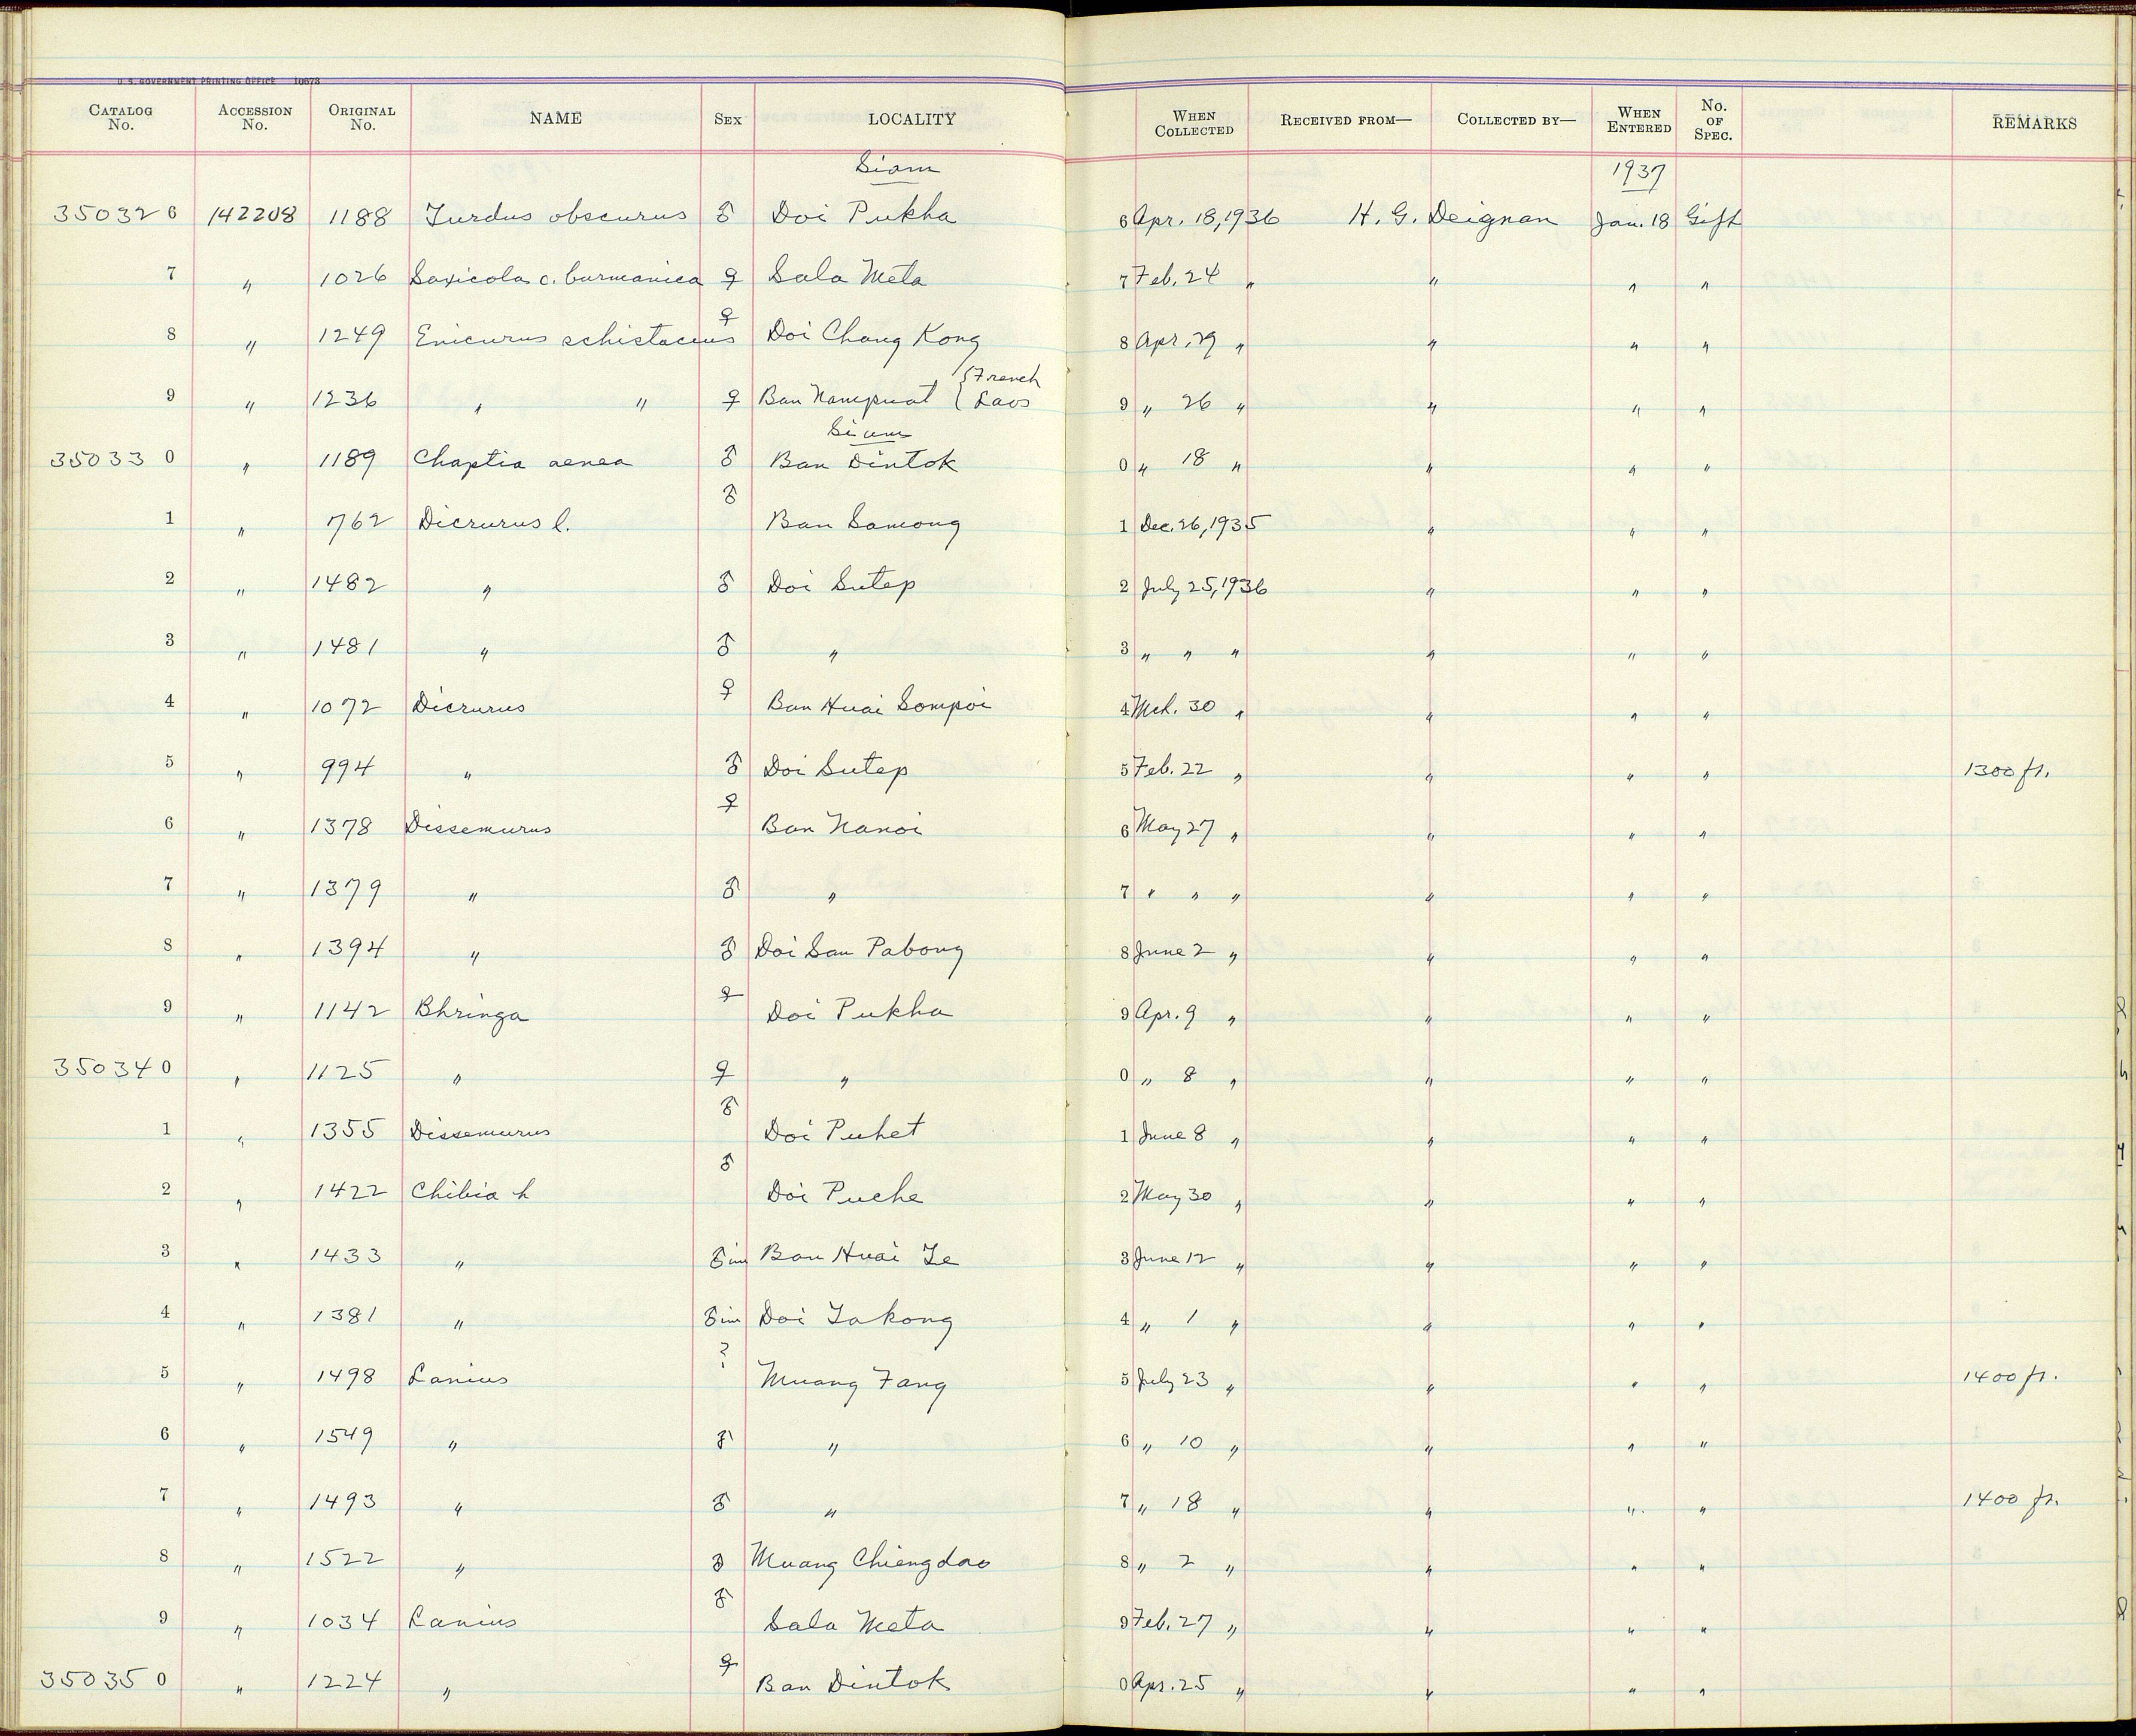 U. S. GOVERNMENT PRINTING OFFICE 10673
CATALOG No. ACCESSION No. ORIGINAL No. NAME SEX LOCALITY WHEN COLLECTED RECEIVED FROM— COLLECTED BY— WHEN ENTERED No. OF SPEC. REMARKS
Siam 1937
350326 142208 1188 Turdus obscurus ♂ Doi Pukha 6 Apr. 18, 1936 H. G. Deignan Jan. 18 Gift
7 " 1026 Saxicola c. burmanica ♀ Sala Meta 7 Feb. 24 " " " "
8 " 1249 Enicurus schistaceus ♀ Doi Chang Kong 8 Apr. 29 " " " "
9 " 1236 " " ♀ Ban Nampuat { French Laos 9 " 26 " " " "
Siam
350330 " 1189 Chaptia aenea ♂ Ban Dintok 0 " 18 " " " "
1 " 762 Dicrurus l. ♂ Ban Samong 1 Dec. 26, 1935 " " "
2 " 1482 " ♂ Doi Sutep 2 July 25, 1936 " " "
3 " 1481 " ♂ " 3 " " " " " "
4 " 1072 Dicrurus ♀ Ban Huai Sompoi 4 Mch. 30 " " " "
5 " 994 " ♂ Doi Sutep 5 Feb. 22 " " " " 1300 ft.
6 " 1378 Dissemurus ♀ Ban Nanoi 6 May 27 " " " "
7 " 1379 " ♂ " 7 " " " " " "
8 " 1394 " ♂ Doi San Pabong 8 June 2 " " " "
9 " 1142 Bhringa ♀ Doi Pukha 9 Apr. 9 " " " "
350340 " 1125 " ♀ " 0 " 8 " " " "
1 " 1355 Dissemurus ♂ Doi Puhet 1 June 8 " " " "
2 " 1422 Chibia h ♂ Doi Puche 2 May 30 " " " "
3 " 1433 " ♂ im Ban Huai Te 3 June 12 " " " "
4 " 1381 " ♂ im Doi Takong 4 " 1 " " " "
5 " 1498 Lanius ? Muang Fang 5 July 23 " " " " 1400 ft.
6 " 1549 " ♂ " 6 " 10 " " " "
7 " 1493 " ♂ " 7 " 18 " " " " 1400 ft.
8 " 1522 " ♂ Muang Chiengdao 8 " 2 " " " "
9 " 1034 Lanius ♂ Sala Meta 9 Feb. 27 " " " "
350350 " 1224 " ♀ Ban Dintok 0 Apr. 25 " " " "